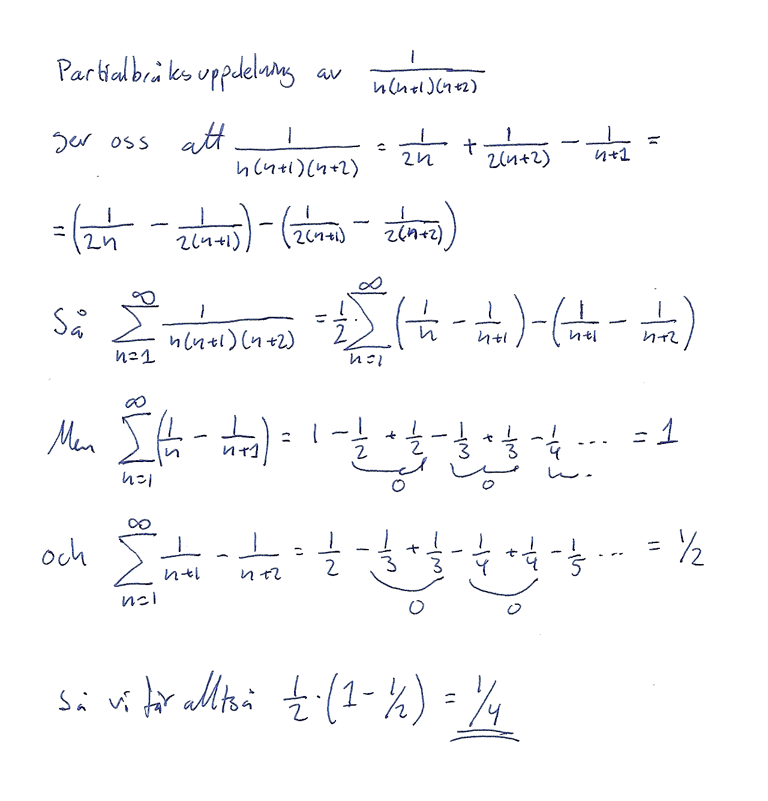 Partialbråksuppdelning av 1/(n(n+1)(n+2))
ger oss att 1/(n(n+1)(n+2)) = 1/(2n) + 1/(2(n+2)) − 1/(n+1) =
= (1/(2n) − 1/(2(n+1))) − (1/(2(n+1)) − 1/(2(n+2)))
Så ∑_{n=1}^{∞} 1/(n(n+1)(n+2)) = 1/2 · ∑_{n=1}^{∞} (1/n − 1/(n+1)) − (1/(n+1) − 1/(n+2))
Men ∑_{n=1}^{∞} (1/n − 1/(n+1)) = 1 − 1/2 + 1/2 − 1/3 + 1/3 − 1/4 ... = 1
0 0
och ∑_{n=1}^{∞} 1/(n+1) − 1/(n+2) = 1/2 − 1/3 + 1/3 − 1/4 + 1/4 − 1/5 ... = 1/2
0 0
Så vi får alltså 1/2 · (1 − 1/2) = 1/4